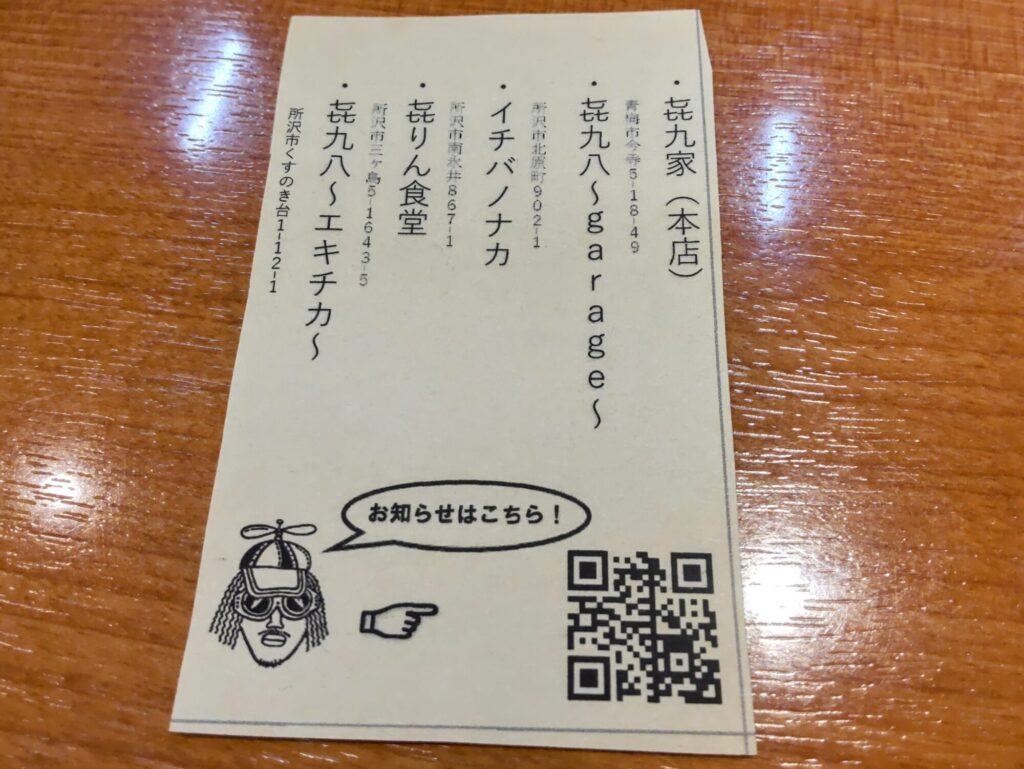 ・㐂九家（本店）
青梅市今寺5-18-49
・㐂九八～garage～
所沢市北原町902-1
・イチバノナカ
所沢市南永井867-1
・㐂りん食堂
所沢市三ヶ島5-1643-5
・㐂九八～エキチカ～
所沢市くすのき台1-12-1
お知らせはこちら！